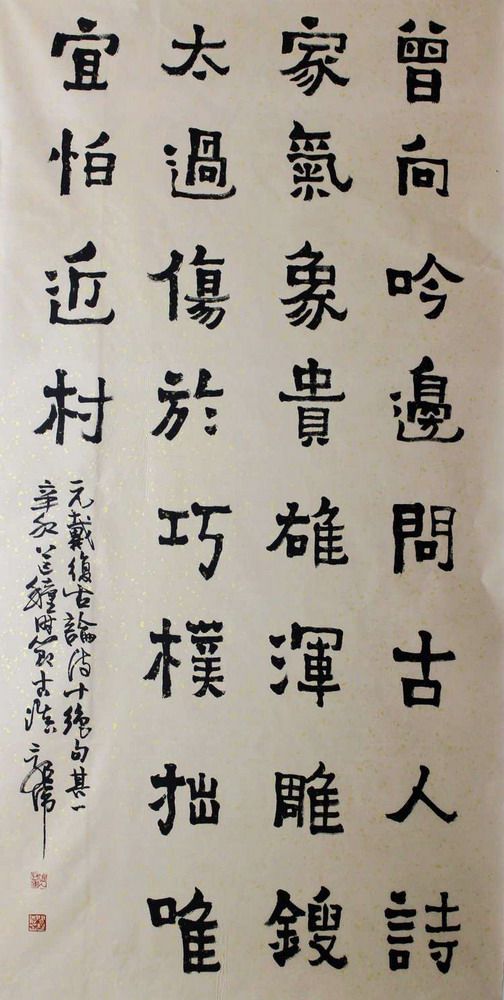 曾向吟邊問古人詩
家氣象貴雄渾雕鎪
太過傷於巧樸拙唯
宜怕近村
元戴復古論诗十絕句其一
辛卯芒種時節古滇